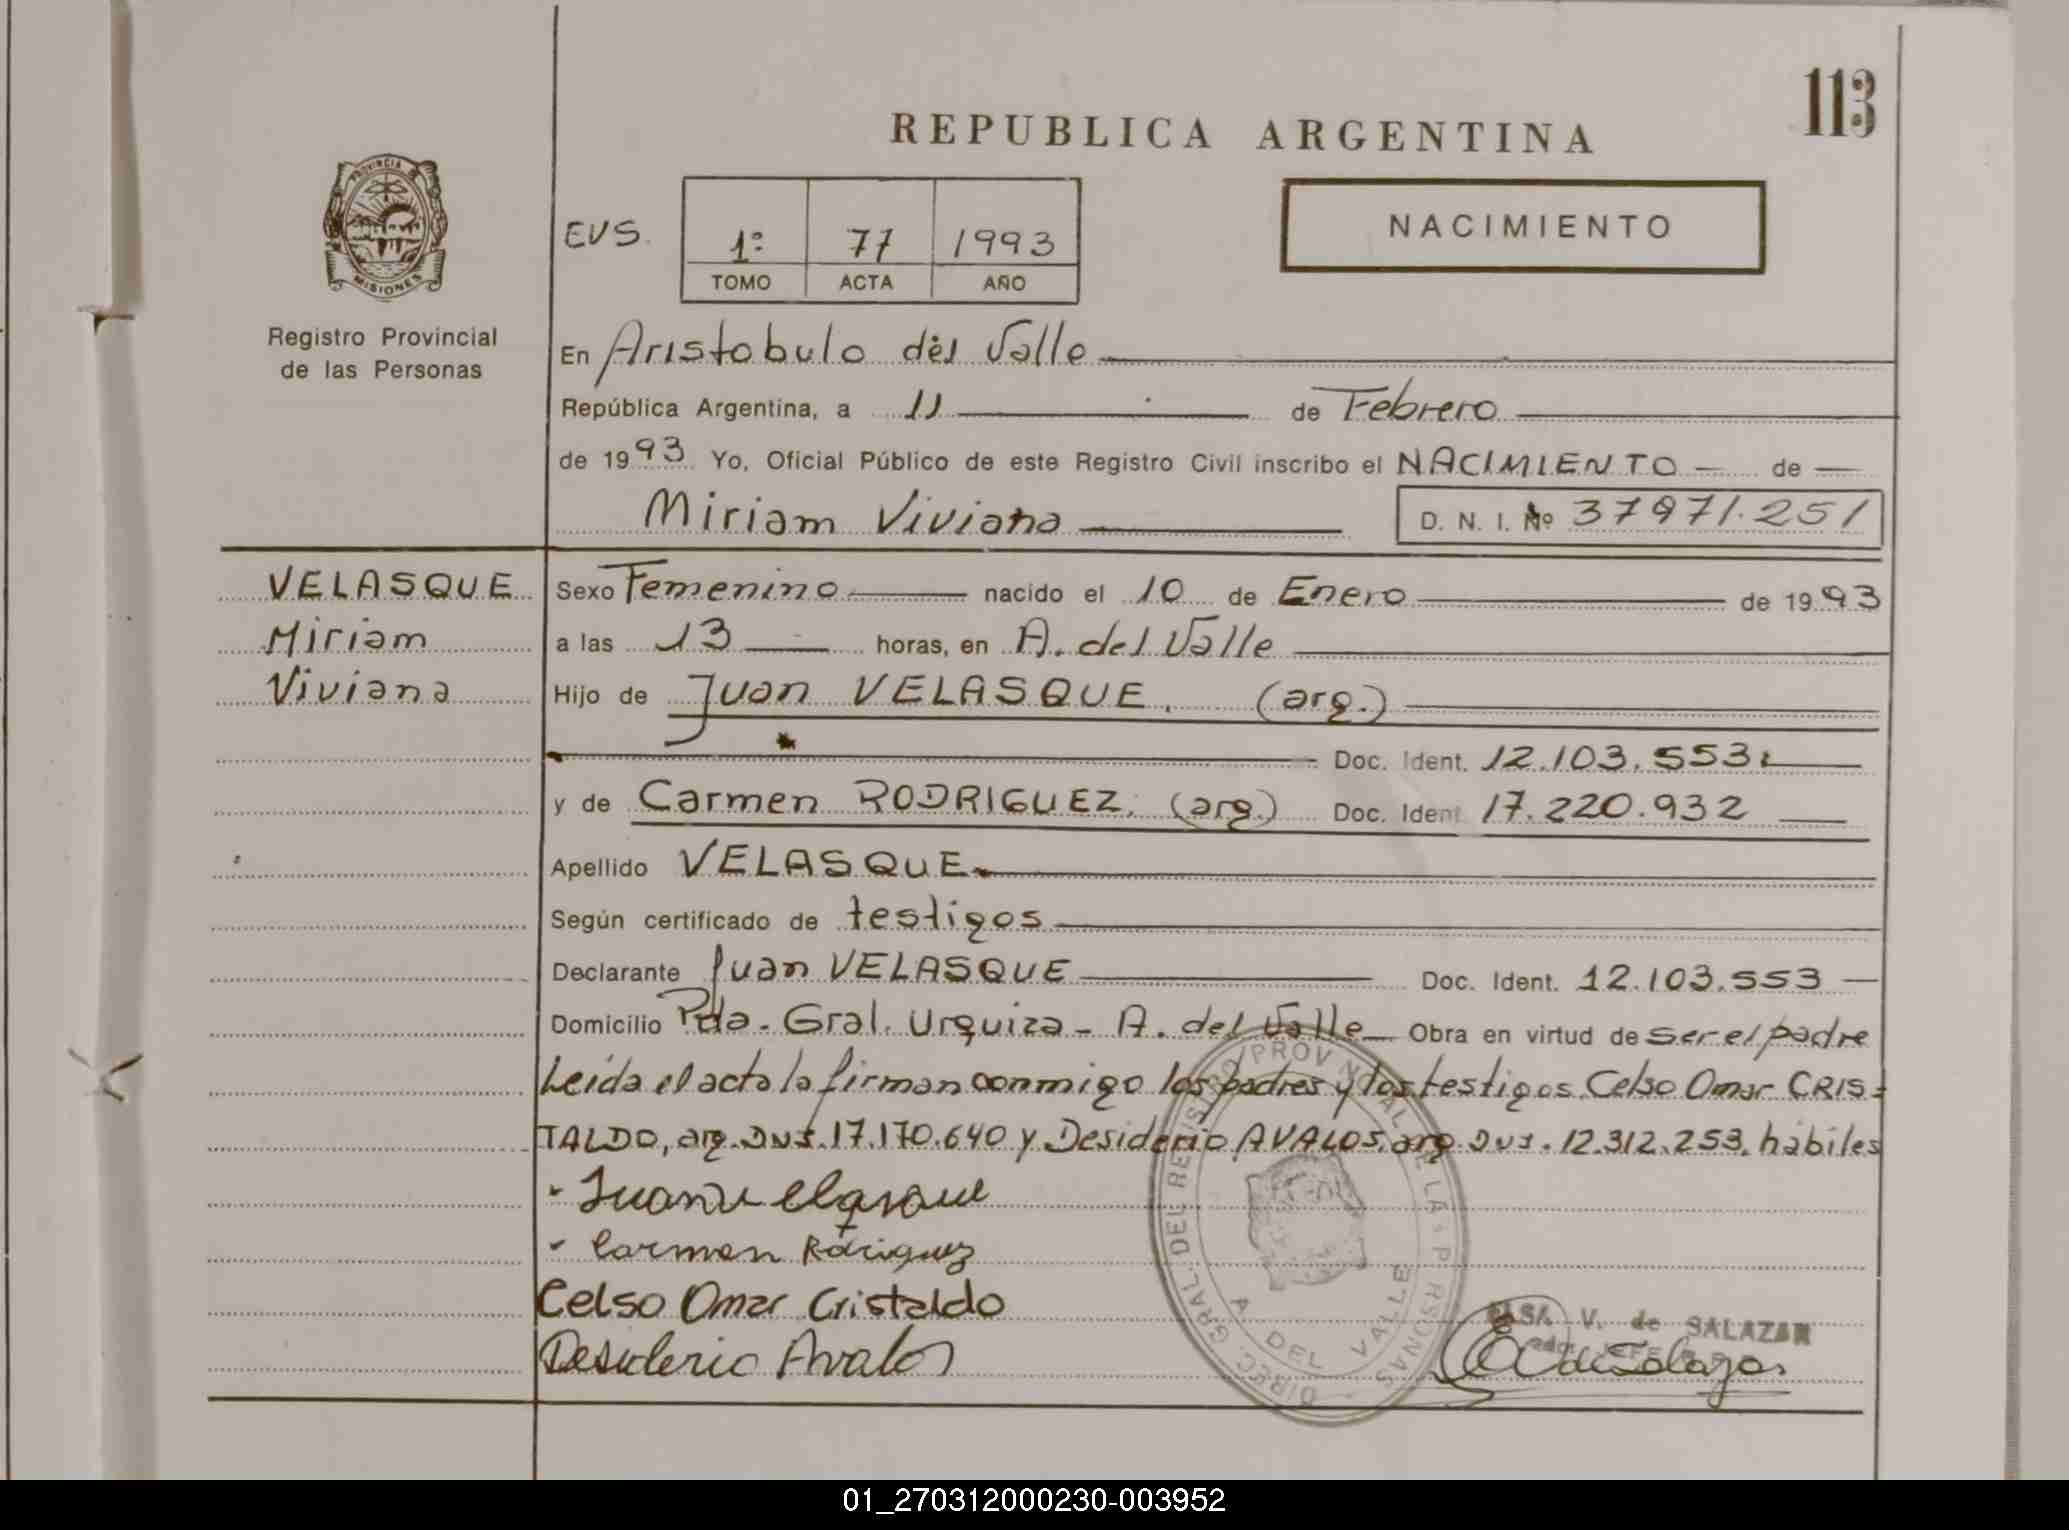 113
REPUBLICA ARGENTINA
PROVINCIA
MISIONES
Registro Provincial
de las Personas
EVS.
1º 77 1993
TOMO ACTA AÑO
NACIMIENTO
En Aristobulo del Valle
República Argentina, a 11 de Febrero
de 1993 Yo, Oficial Público de este Registro Civil inscribo el NACIMIENTO — de —
Miriam Viviana D. N. I. Nº 37971.251
VELASQUE
Miriam
Viviana
Sexo Femenino nacido el 10 de Enero de 1993
a las 13 horas, en A. del Valle
Hijo de Juan VELASQUE, (arg.)
Doc. Ident. 12.103.553
y de Carmen RODRIGUEZ, (arg.) Doc. Ident. 17.220.932
Apellido VELASQUE
Según certificado de testigos
Declarante Juan VELASQUE Doc. Ident. 12.103.553 —
Domicilio Pda. Gral. Urquiza - A. del Valle Obra en virtud de ser el padre
Leída el acta la firman conmigo los padres y los testigos. Celso Omar CRIS=
TALDO, arg. DNI. 17.170.640 y Desiderio AVALOS, arg. DNI. 12.312.253, hábiles
Juan Velasque
Carmen Rodriguez
Celso Omar Cristaldo
Desiderio Avalos
DIREC. GRAL. DEL REGISTRO PROVINCIAL DE LAS PERSONAS
A. DEL VALLE
ELSA V. de SALAZAR
01_270312000230-003952